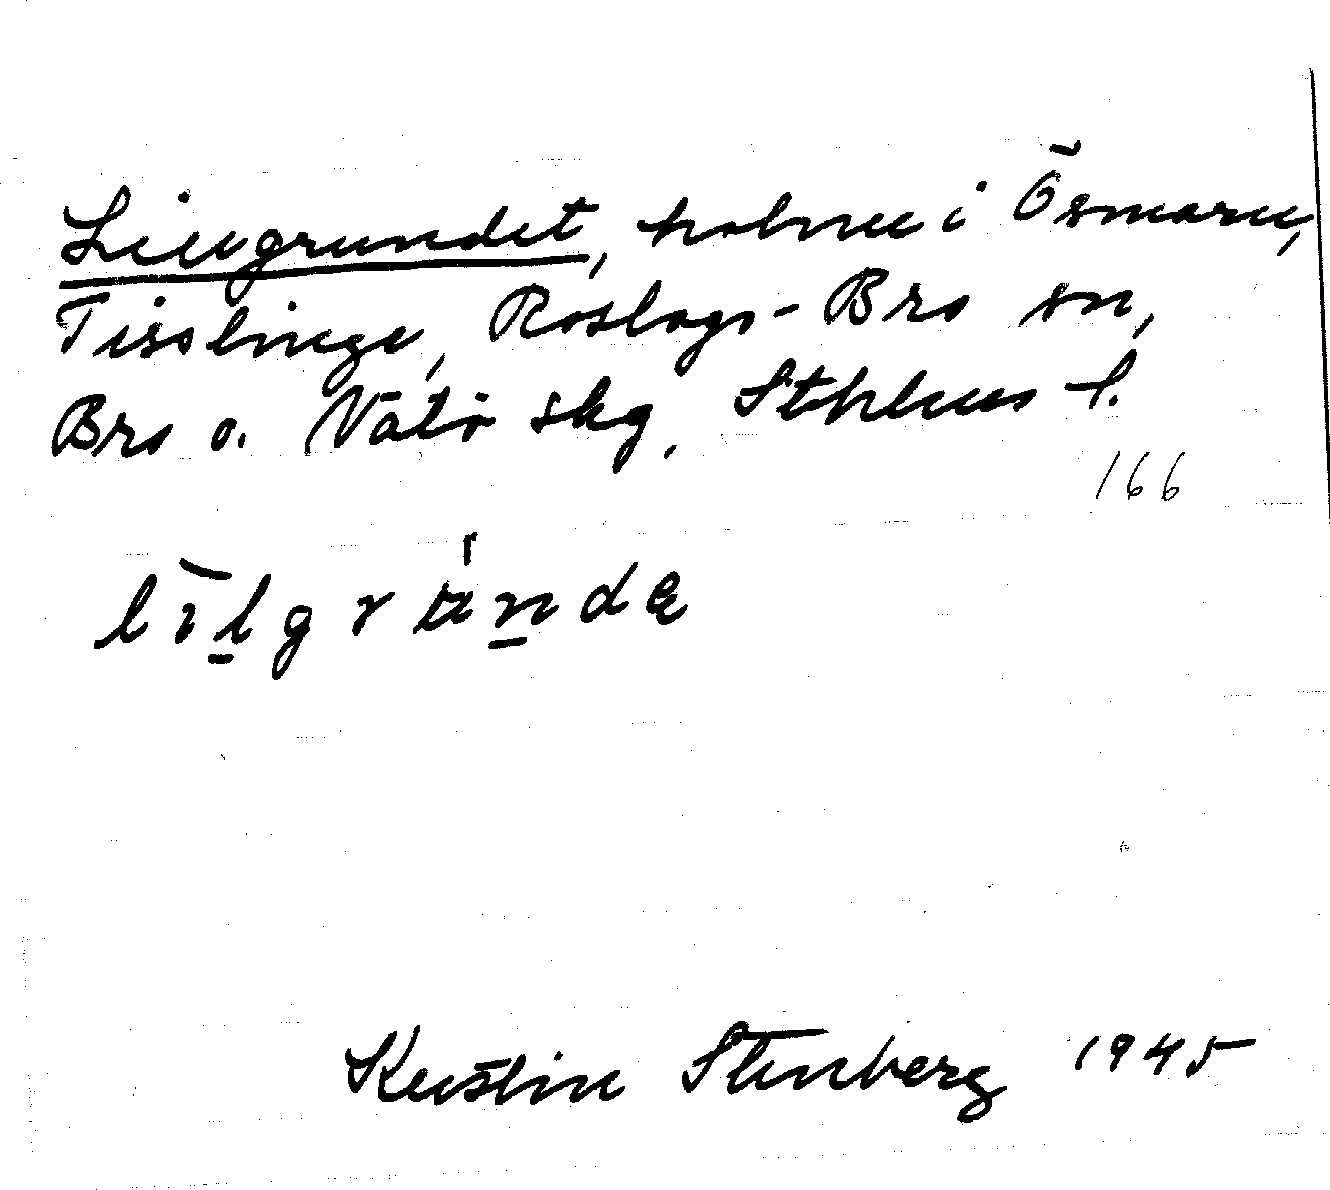 Lillgrundet, holme i Ösmaren,
Tisslinge, Roslags-Bro sn,
Bro o. Vätö skg, Sthlms l.
166
līlgrunde
Kerstin Stenberg 1945